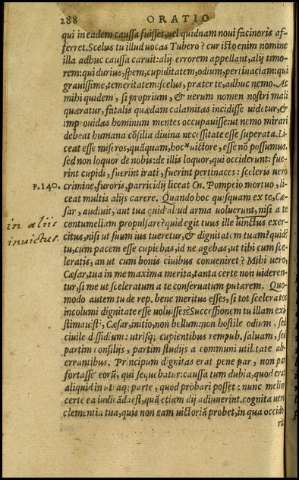 288 ORATIO
qui in eadem caussa fuisset, uel quidnam noui sceleris af-
ferret. Scelus tu illud uocas Tubero? cur isto enim nomine
illa adhuc caussa caruit: alij errorem appellant, alij timo-
rem: qui durius, spem, cupiditatem, odium, pertinaciam: qui
grauissime, temeritatem: scelus, praeter te, adhuc nemo. Ac
mihi quidem, si proprium, & uerum nomen nostri mali
quaeratur, fatalis quaedam calamitas incidisse uidetur, &
improuidas hominum mentes occupauisse: ut nemo mirari
debeat humana cōsilia diuina necessitate esse superata. Li-
ceat esse miseros, quāquam, hoc uictore, esse nō possumus.
sed non loquor de nobis: de illis loquor, qui occiderunt: fue-
rint cupidi, fuerint irati, fuerint pertinaces: sceleris uero
P. 140. crimine, furoris, parricidij liceat Cn. Pompeio mortuo, li-
ceat multis alijs carere. Quando hoc quisquam ex te, Cae-
in aliis sar, audiuit, aut tua quid aliud arma uoluerunt, nisi a te con-
inuictus tumeliam propulsare? quid egit tuus ille inuictus exer-
citus, nisi ut suum ius tueretur, & dignitatem tuam? quid?
tu, cum pacem esse cupiebas, id ne agebas, ut tibi cum sce-
leratis, an ut cum bonis ciuibus conueniret? Mihi uero,
Caesar, tua in me maxima merita, tanta certe non uideren-
tur, si me ut sceleratum a te conseruatum putarem. Quo-
modo autem tu de rep. bene meritus esses, si tot sceleratos
incolumi dignitate esse uoluisses? Secessionem tu illam exi-
stimauisti, Caesar, initio, non bellum: non hostile odium, sed
ciuile dissidium: utrisque cupientibus rempub. saluam, sed
partim consilijs, partim studijs a communi utilitate ab-
errantibus. Principum dignitas erat pene par, non par
fortasse eorū, qui sequebatur: caussa tum dubia, quod erat
aliquid in utraque parte, quod probari posset: nunc melior
certe ea iudicāda est, quā etiam dij adiuuerint. cognita uero
clementia tua, quis non eam uictoriā probet, in qua occide-
rit